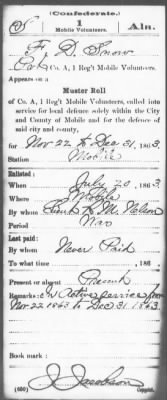 (Confederate.)
S 1 Ala.
Mobile Volunteers.
F. D. Snow
Co. A, 1 Reg't Mobile Volunteers.
Appears on a
Muster Roll
of Co. A, 1 Reg't Mobile Volunteers, called into
service for local defense solely within the City
and County of Mobile and for the defence of
said city and county,
for Nov 22 to Dec 31, 1863.
Station Mobile
Enlisted:
When July 20, 1863.
Where Mobile
By whom Nelson
Period War
Last paid:
By whom Never Paid
To what time , 186 .
Present or absent Present
Remarks: In Active Service from
Nov 22 1863 to Dec 31 1863.
Book mark:
(650) Copyist.